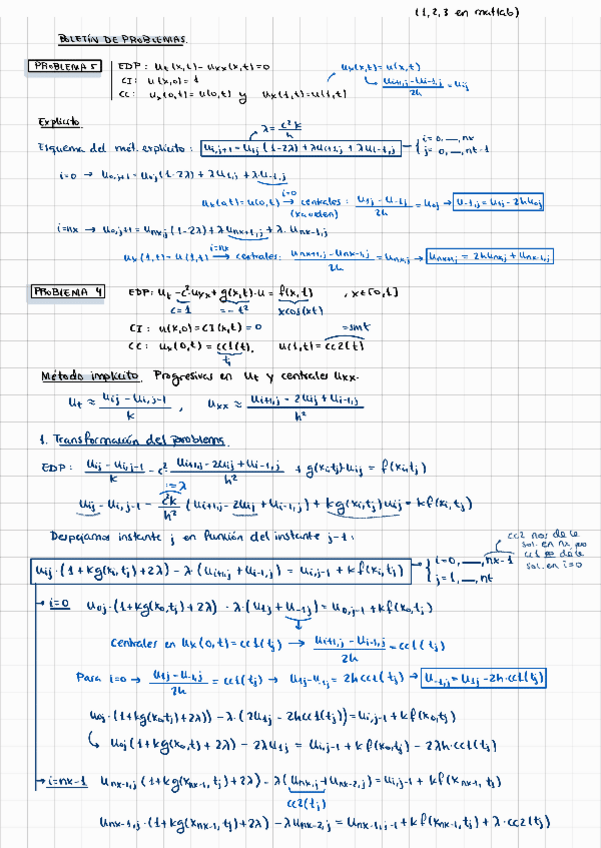 (1,2,3 en matlab)
BOLETÍN DE PROBLEMAS.
PROBLEMA 5
EDP: u_t(x,t) - u_xx(x,t) = 0
CI: u(x,0) = 1
CC: u_x(0,t) = u(0,t) y u_x(1,t) = u(1,t)
u_x(x,t) = u(x,t)
↳ (u_{i+1,j} - u_{i-1,j})/2h = u_{ij}
Explícito
λ = c²k/h
Esquema del mét. explícito: u_{i,j+1} = u_{ij}(1-2λ) + λu_{i+1,j} + λu_{i-1,j} → { i=0,—,nx
j=0,—,nt-1
i=0 → u_{0,j+1} = u_{0j}(1-2λ) + λu_{1,j} + λu_{-1,j}
u_x(0,t) = u(0,t) → i=0 centrales: (u_{1j} - u_{-1j})/2h = u_{0j} → u_{-1,j} = u_{1j} - 2hu_{0j}
i=nx → u_{0,j+1} = u_{nx,j}(1-2λ) + λu_{nx+1,j} + λ·u_{nx-1,j}
u_x(1,t) = u(1,t) → i=nx centrales: (u_{nx+1,j} - u_{nx-1,j})/2h = u_{nx,j} → u_{nx+1,j} = 2hu_{nx,j} + u_{nx-1,j}
PROBLEMA 4
EDP: u_t - c²·u_xx + g(x,t)·u = f(x,t) , x∈[0,1]
c=1 = -t² xcos(xt)
CI: u(x,0) = CI(x,t) = 0 = sint
CC: u_x(0,t) = cc1(t), u(1,t) = cc2(t)
t
Método implícito. Progresivas en u_t y centrales u_xx.
u_t ≈ (u_{ij} - u_{i,j-1})/k , u_xx ≈ (u_{i+1,j} - 2u_{ij} + u_{i-1,j})/h²
1. Transformación del problema.
EDP: (u_{ij} - u_{i,j-1})/k - c² (u_{i+1,j} - 2u_{ij} + u_{i-1,j})/h² + g(x_i,t_j)u_{ij} = f(x_i,t_j)
u_{ij} - u_{i,j-1} - c²k/h² (u_{i+1,j} - 2u_{ij} + u_{i-1,j}) + kg(x_i,t_j)u_{ij} = kf(x_i,t_j)
Despejamos instante j en función del instante j-1:
cc2 nos da la
sol. en nx
cc1
sol. en i=0
u_{ij}·(1+kg(x_i,t_j)+2λ) - λ·(u_{i+1,j} + u_{i-1,j}) = u_{i,j-1} + kf(x_i,t_j) → { i=0,—,nx-1
j=1,—,nt
→ i=0 u_{0j}·(1+kg(x_0,t_j)+2λ) - λ·(u_{1j} + u_{-1j}) = u_{0,j-1} + kf(x_0,t_j)
Centrales en u_x(0,t) = cc1(t_j) → (u_{i+1,j} - u_{i-1,j})/2h = cc1(t_j)
Para i=0 → (u_{1j} - u_{-1,j})/2h = cc1(t_j) → u_{1j} - u_{-1j} = 2hcc1(t_j) → u_{-1,j} = u_{1j} - 2h·cc1(t_j)
u_{0j}·(1+kg(x_0,t_j)+2λ)) - λ·(2u_{1j} - 2hcc1(t_j)) = u_{i,j-1} + kf(x_0,t_j)
↳ u_{0j}(1+kg(x_0,t)+2λ) - 2λu_{1j} = u_{i,j-1} + kf(x_0,t_j) - 2λh·cc1(t_j)
→ i=nx-1 u_{nx-1,j}(1+kg(x_{nx-1},t_j)+2λ) - λ(u_{nx,j} + u_{nx-2,j}) = u_{i,j-1} + kf(x_{nx-1},t_j)
cc2(t_j)
u_{nx-1,j}·(1+kg(x_{nx-1},t_j)+2λ) - λu_{nx-2,j} = u_{nx-1,j-1} + kf(x_{nx-1},t_j) + λ·cc2(t_j)